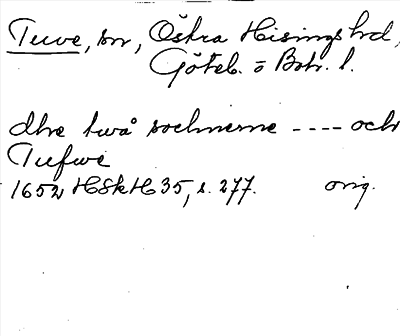 Tuve, sn, Östra Hisings hd,
Göteb. o Boh. l.
dhe twå sochnerne ---- och
Tufwe
1652 HSkH 35, s. 277. orig.